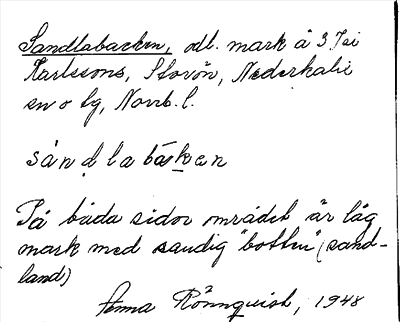 Sandlabacken, odl. mark å 3 Isi
Karlssons, Storön, Nederkalix
sn o tg, Norrb. l.
sán ḍ la bas̱ḵen
På båda sidor området är låg
mark med sandig "botten" (sand-
land)
Anna Rönnquist, 1948